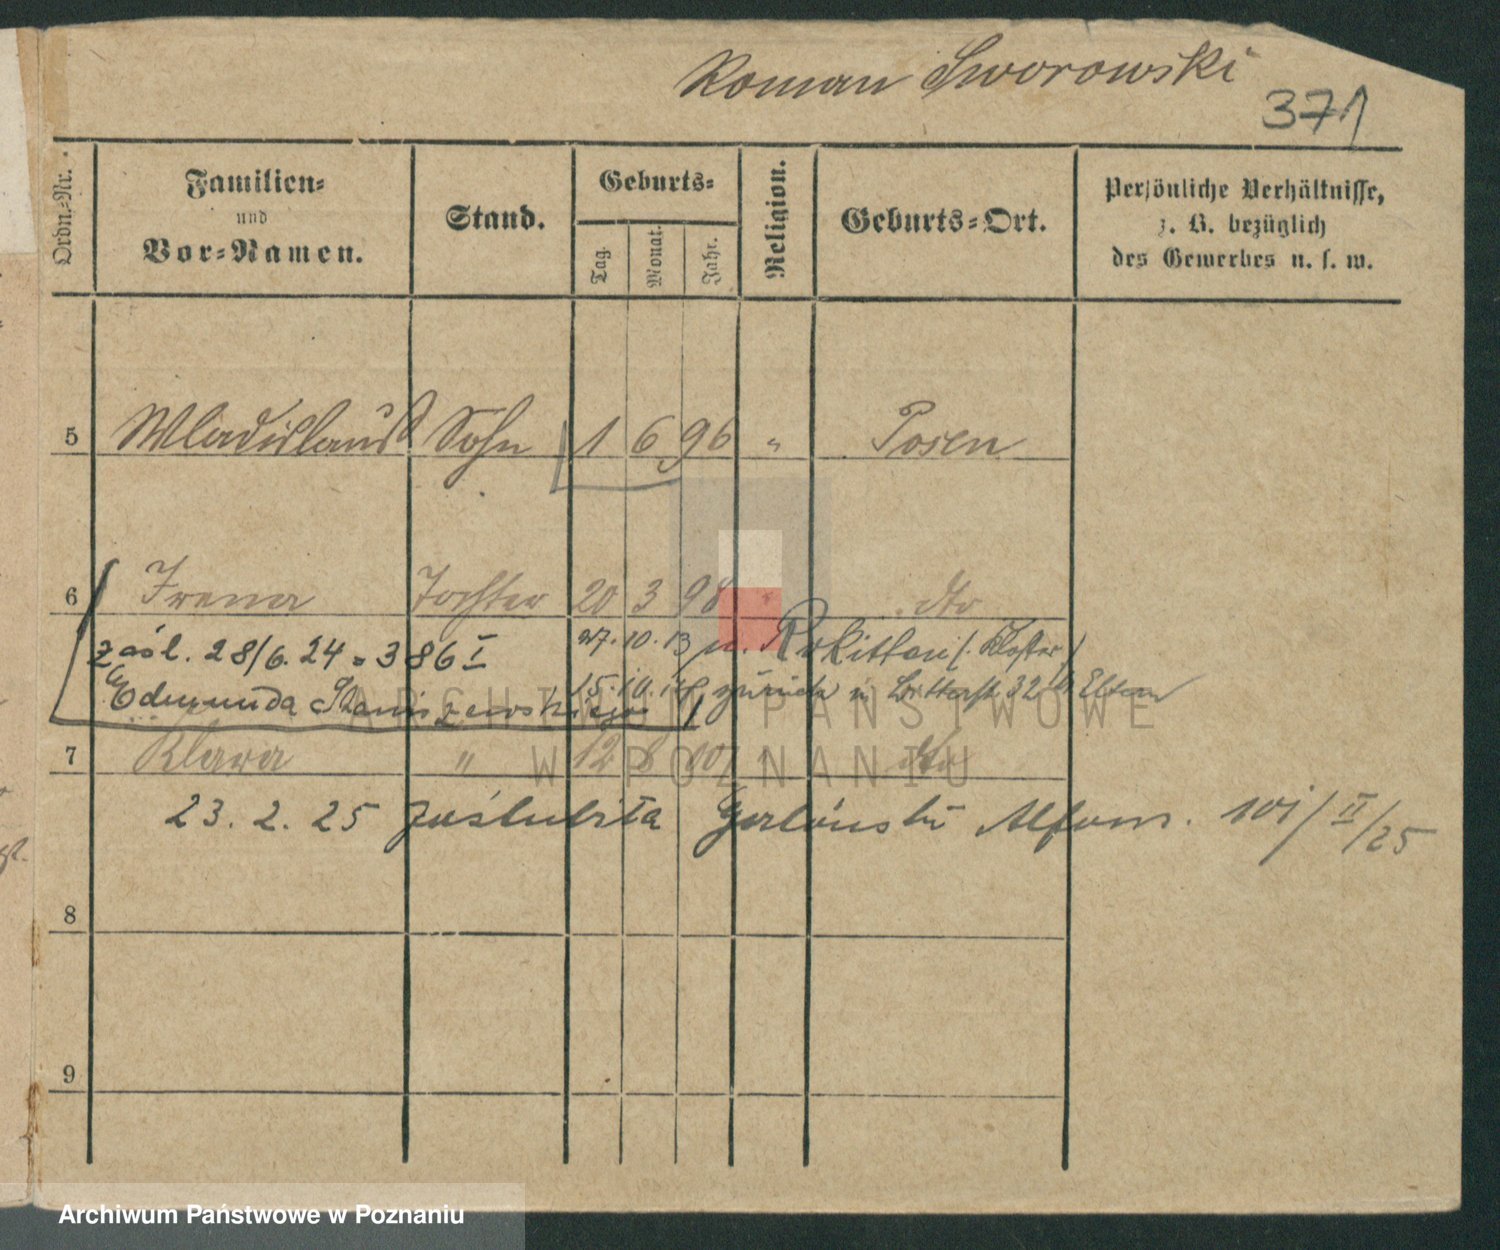 Roman Sworowski
371
Ordn.-Nr.
Familien-
und
Vor-Namen.
Stand.
Geburts-
Tag.
Monat.
Jahr.
Religion.
Geburts-Ort.
Persönliche Verhältnisse,
z. B. bezüglich
des Gewerbes u. s. w.
5 Wladislaus Sohn 1 6 96 " Posen
6 Irena Tochter 20 3 98 " dto
27.10.13 n. Rokitten (Kloster)
zaśl. 28/6.24 386 I
15.10. zurück v. 32 Eltern
Edmunda Staniszewskiego
7 Klara " 12 8 00 " dto
23.2.25 zaślubiła Alfons. 101/II/25
8
9
ARCHIWUM PAŃSTWOWE
W POZNANIU
Archiwum Państwowe w Poznaniu